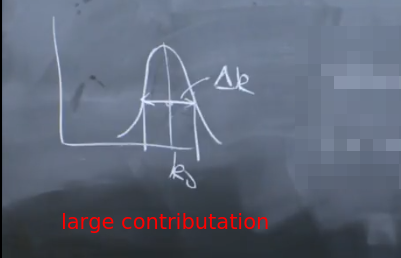 Δk
k₀
large contributation